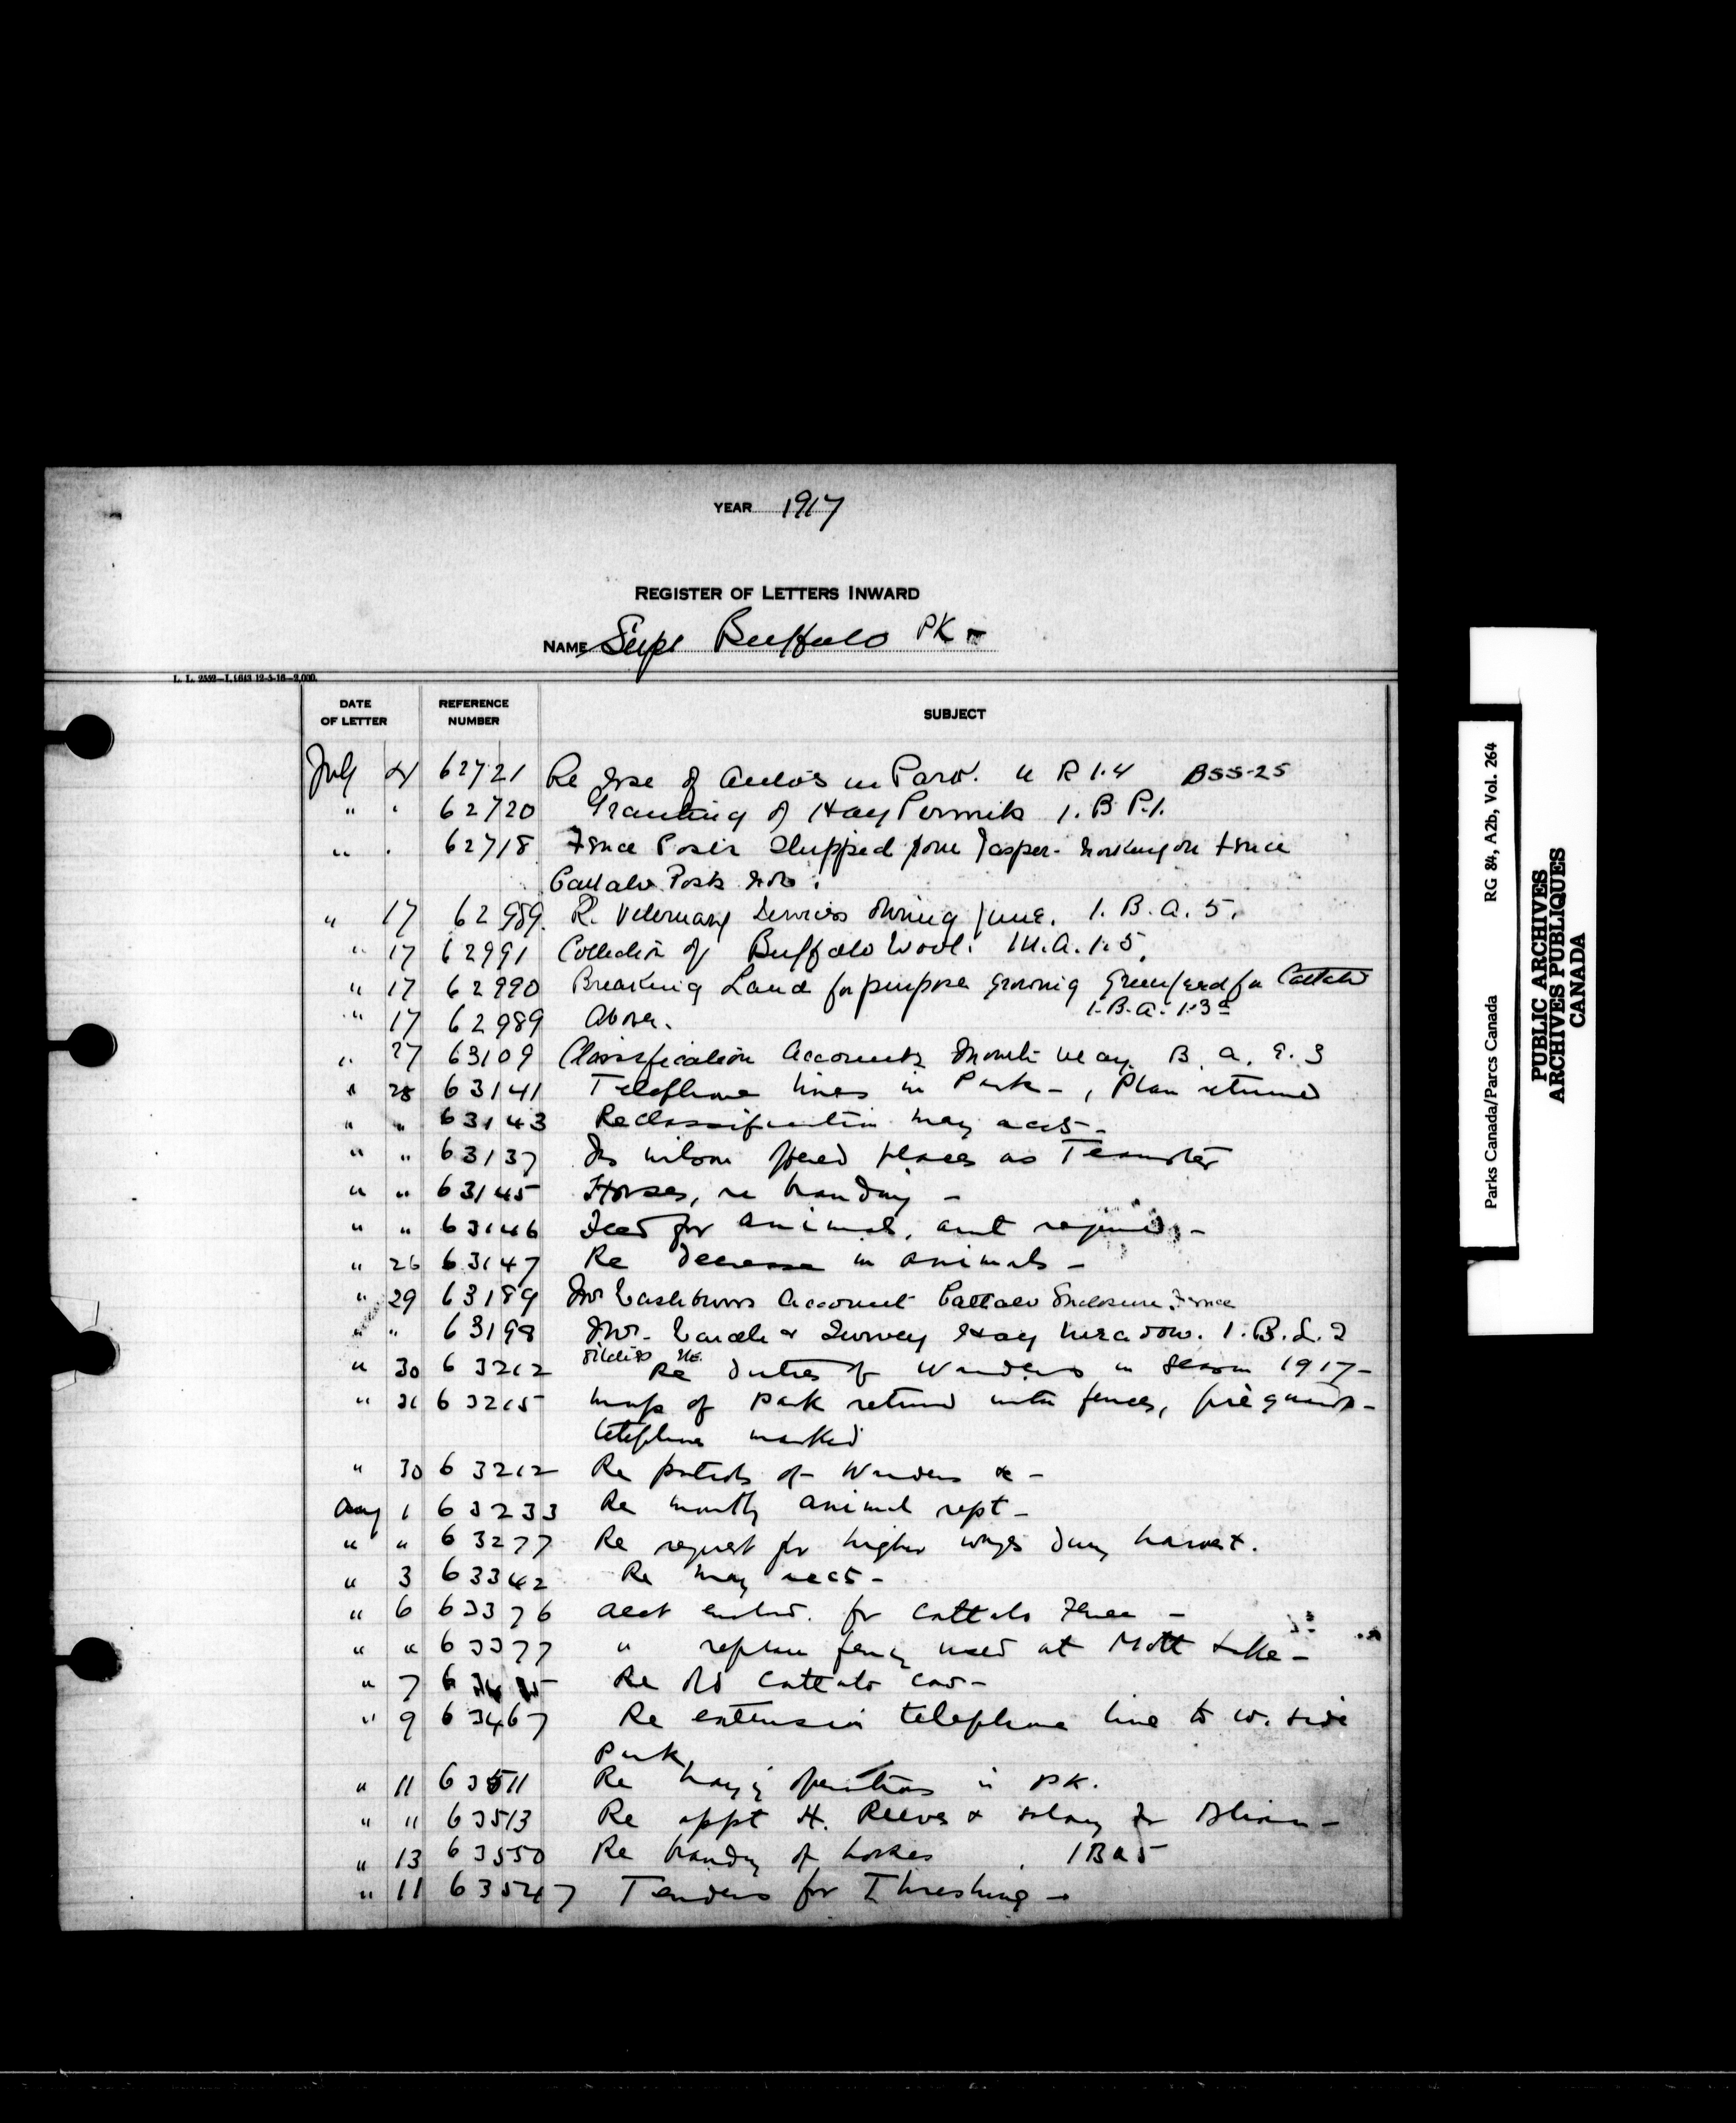 YEAR 1917
REGISTER OF LETTERS INWARD
NAME Supt Buffalo PK -
L. L. 2552—I, 1643 12-5-16—2,000.
DATE OF LETTER REFERENCE NUMBER SUBJECT
July 4 62721 Re Use of Autos in Park. U R 1.4 BSS-25
" " 62720 Granting of Hay Permits 1. B P.1.
" " 62718 Fence Posts Shipped from Jasper - working on fence
Cattalo Posts
" 17 62989. R. Veterinary Services during June. 1. B. A. 5.
" 17 62991 Collection of Buffalo Wool. M.A. 1.5.
" 17 62990 Breaking Land for purpose growing Greenfeed for Cattalo
1.B.A. 1.3
" 17 62989 Above.
" 27 63109 Classification Accounts Month May. B. A. 9. 3
" 28 63141 Telephone lines in Park - , Plan returned
" " 63143 Reclassification May accts -
" " 63137 Wilson offered places as Teamster
" " 63145 Horses, re branding -
" " 63146 Feed for animals, amt required -
" 26 63147 Re decrease in animals -
" 29 63189 Mr Washburns Account Cattalo Enclosure Fence
" " 63198 Mr. Wardle & Survey Hay Meadow. 1. B. L. 2
" 30 63212 Re duties of Wardens in season 1917 -
" 31 63215 Map of Park returned with fences, fire guards -
telephone marked
" 30 63212 Re patrols of Wardens & -
Aug 1 63233 Re monthly animal rept -
" " 63277 Re request for higher wages during harvest.
" 3 63342 Re May accts -
" 6 63376 Acct enclsd. for Cattalo Fence -
" " 63377 " replace fencing used at Mott Lake -
" 7 Re old Cattalo cow -
" 9 63467 Re extension telephone line to W. side
Park
" 11 63511 Re haying operations in PK.
" " 11 63513 Re appt H. Reeves & salary for
" 13 63550 Re branding of horses 1 B A 5
" 11 63547 Tenders for Threshing -
Parks Canada/Parcs Canada RG 84, A2b, Vol. 264
PUBLIC ARCHIVES
ARCHIVES PUBLIQUES
CANADA